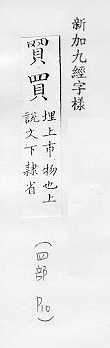 新加九經字樣
買
埋上市物也上
說文下隸省
(四部 P10)